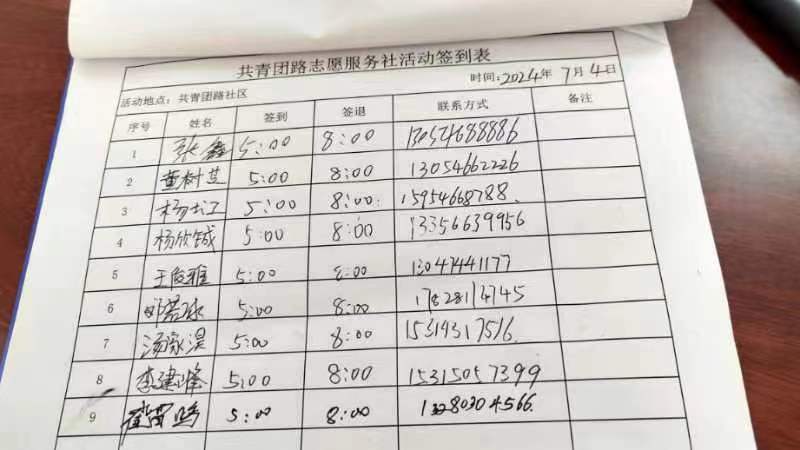 共青团路志愿服务社活动签到表
时间：2024年 7月 4日
活动地点：共青团路社区
序号 姓名 签到 签退 联系方式 备注
1 张鑫 5:00 8:00 13054688886
2 黄树兰 5:00 8:00 13054662226
3 杨 5:00 8:00 15954668788
4 杨欣铖 5:00 8:00 13356639956
5 王 雅 5:00 8:00 13047441177
6 5:00 8:00 17828114745
7 汤家淏 5:00 8:00 15314317516
8 李建峰 5:00 8:00 15315057399
9 5:00 8:00 13280304566